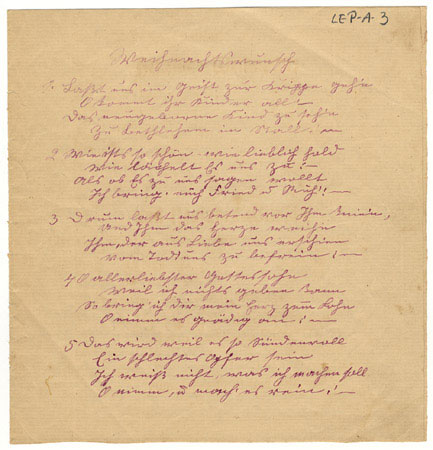 LEP-A-3
Weihnachtswunsch
1 Laßt uns im Geist zur Krippe gehn
O kommt ihr Kinder all!
Das neugeborne Kind zu sehn
Zu Bethlehem im Stall. —
2 Wie ists so schön wie lieblich hold
Wie lächelt Es uns zu —
Als ob Es zu uns sagen wollt
Ich bring euch Fried u Ruh! —
3 Drum laßt uns betend vor Ihm knien,
Und Ihm das Herze weihn
Ihm, der aus Liebe uns erschien
vom Tod uns zu befrein! —
4 O allerliebster Gottessohn
Weil ich nichts geben kann
So bring ich dir mein Herz zum Lohn
O nimm es gnädig an! —
5 Das wird weil es so Sündenvoll
Ein schlechtes Opfer sein
Ich weiß nicht, was ich machen soll
O nimm, u mach es rein! —